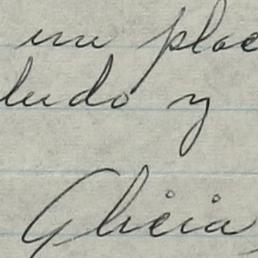 un plac
ludo y
Alicia